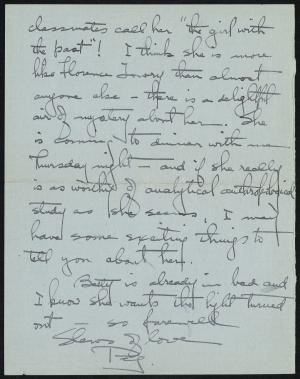 classmates call her "the girl with
the past"! I think she is more
like Florence than almost
anyone else - there is a delightful
air of mystery about her. She
is coming to dinner with me
Thursday night - and if she really
is as worthy of analytical anthropological
study as she seems, I may
have some exciting things to
tell you about her.
Betty is already in bed and
I know she wants the light turned
out - so farewell
love